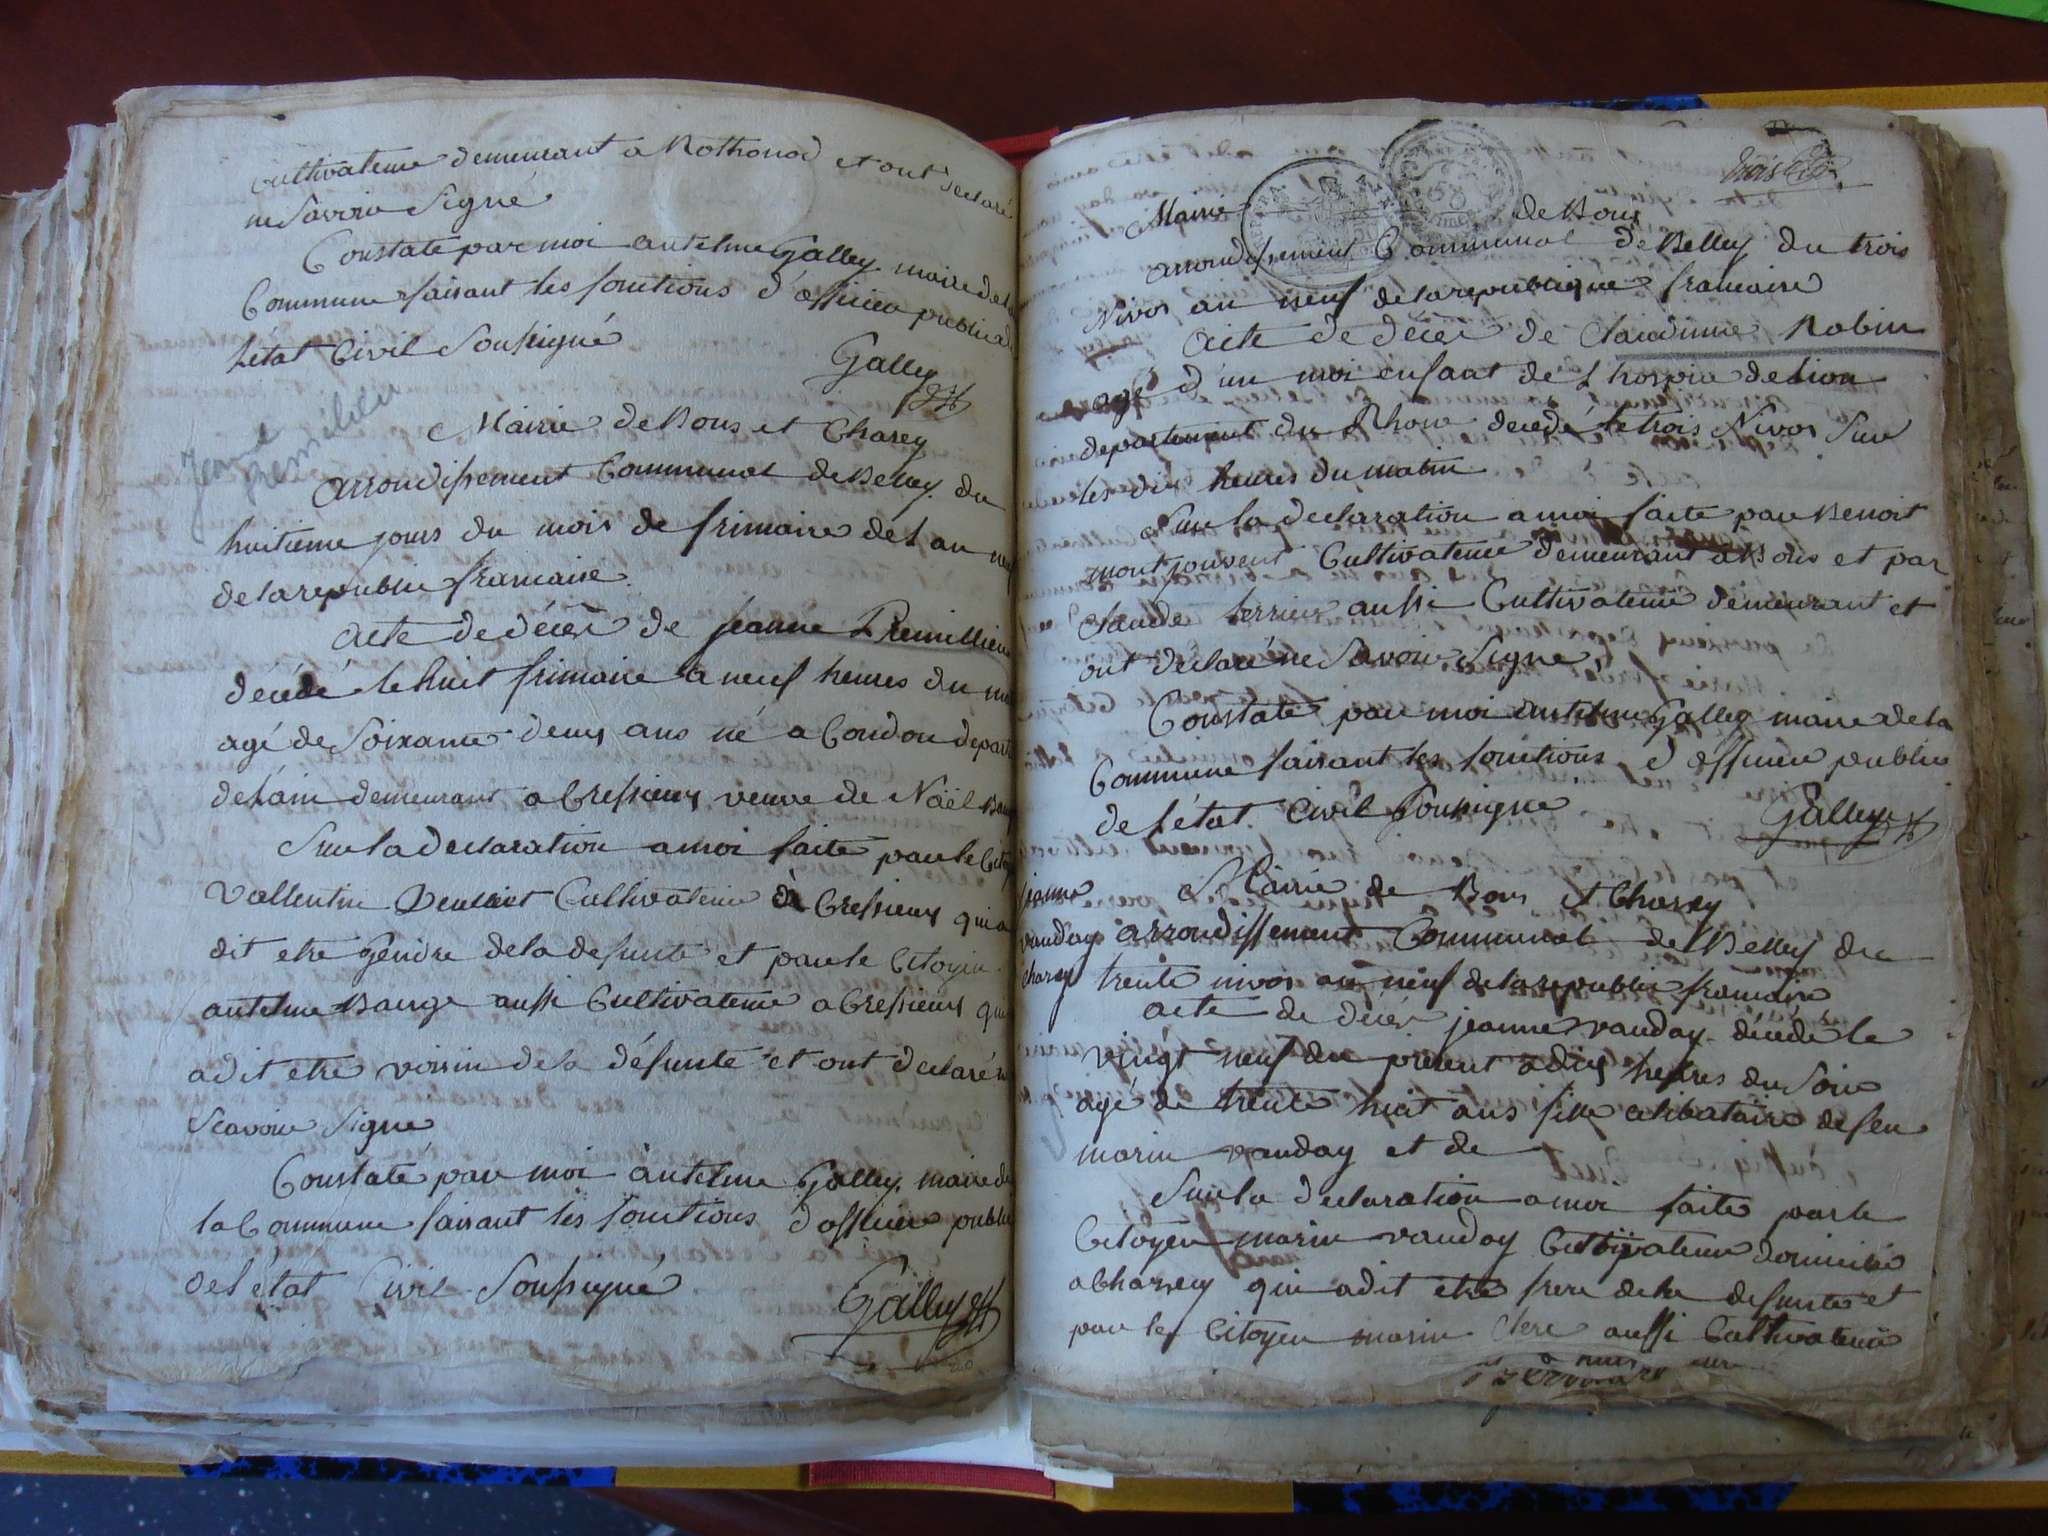 cultivateur demeurant a Rothonod et ont declaré
ne Savoir Signé
Constate par moi antelme Galley maire de la
Commune faisant les fonctions d'officier public de
L'état Civil Soussigné
Galley
Jeanne
premillieu
Mairie de Bons et Charey
arrondissement Communal de Belley du
huitieme jours du mois de frimaire de L an neuf
de la republi francaise
acte de décès de jeanne Premillieu
décédé le huit frimaire a neuf heures du ma
agé de Soixante deux ans né a Condon depart
de L'ain demeurant a Cressieux veuve de Näel Baug
Sur la declaration a moi faite par le Cito
Vallentin Cultivateur à Cressieux qui a
dit etre Gendre de la defunte et par le Citoyen
antelme Bauge aussi Cultivateur a Cressieux qui
a dit etre voisin de la défunte et ont declaré n
Scavoir Signé
Constaté par moi antelme Galley maire de
la Commune faisant les fonctions d'officier public
de L'état Civil Soussigné
Galley
58
Mairie de Bons
arrondissement Communal de Belley du trois
Nivos an neuf de la republique francaise
Acte de décès de Claudinne Robin
agé d'un moi enfant de L hospice de Lion
departement du Rhone decedé le trois Nivos Sur
les dix heures du matin
Sur la declaration a moi faite par Benoit
montjouvent Cultivateur demeurant a Bons et par
Claude terrier aussi Cultivateur demeurant et
ont declaré ne Savoir Signé
Constaté par moi antelme Galley maire de la
Commune faisant les fonctions d'officier public
de L'état Civil Soussigné
Galley
jeanne
vauday
Charey
Mairie de Bons et Charey
arrondissement Communal de Belley du
trente nivos an neuf de la republi francaise
acte de décès jeanne vauday décédé le
vingt neuf du present a dix heures du Soir
agé de trente huit ans fille celibataire de feu
marin vauday et de
Sur la declaration a moi faite par le
Citoyen marin vauday Cultivateur domicilié
a Charvey qui a dit etre frere de la defunte et
par le Citoyen marin Clerc aussi Cultivateur